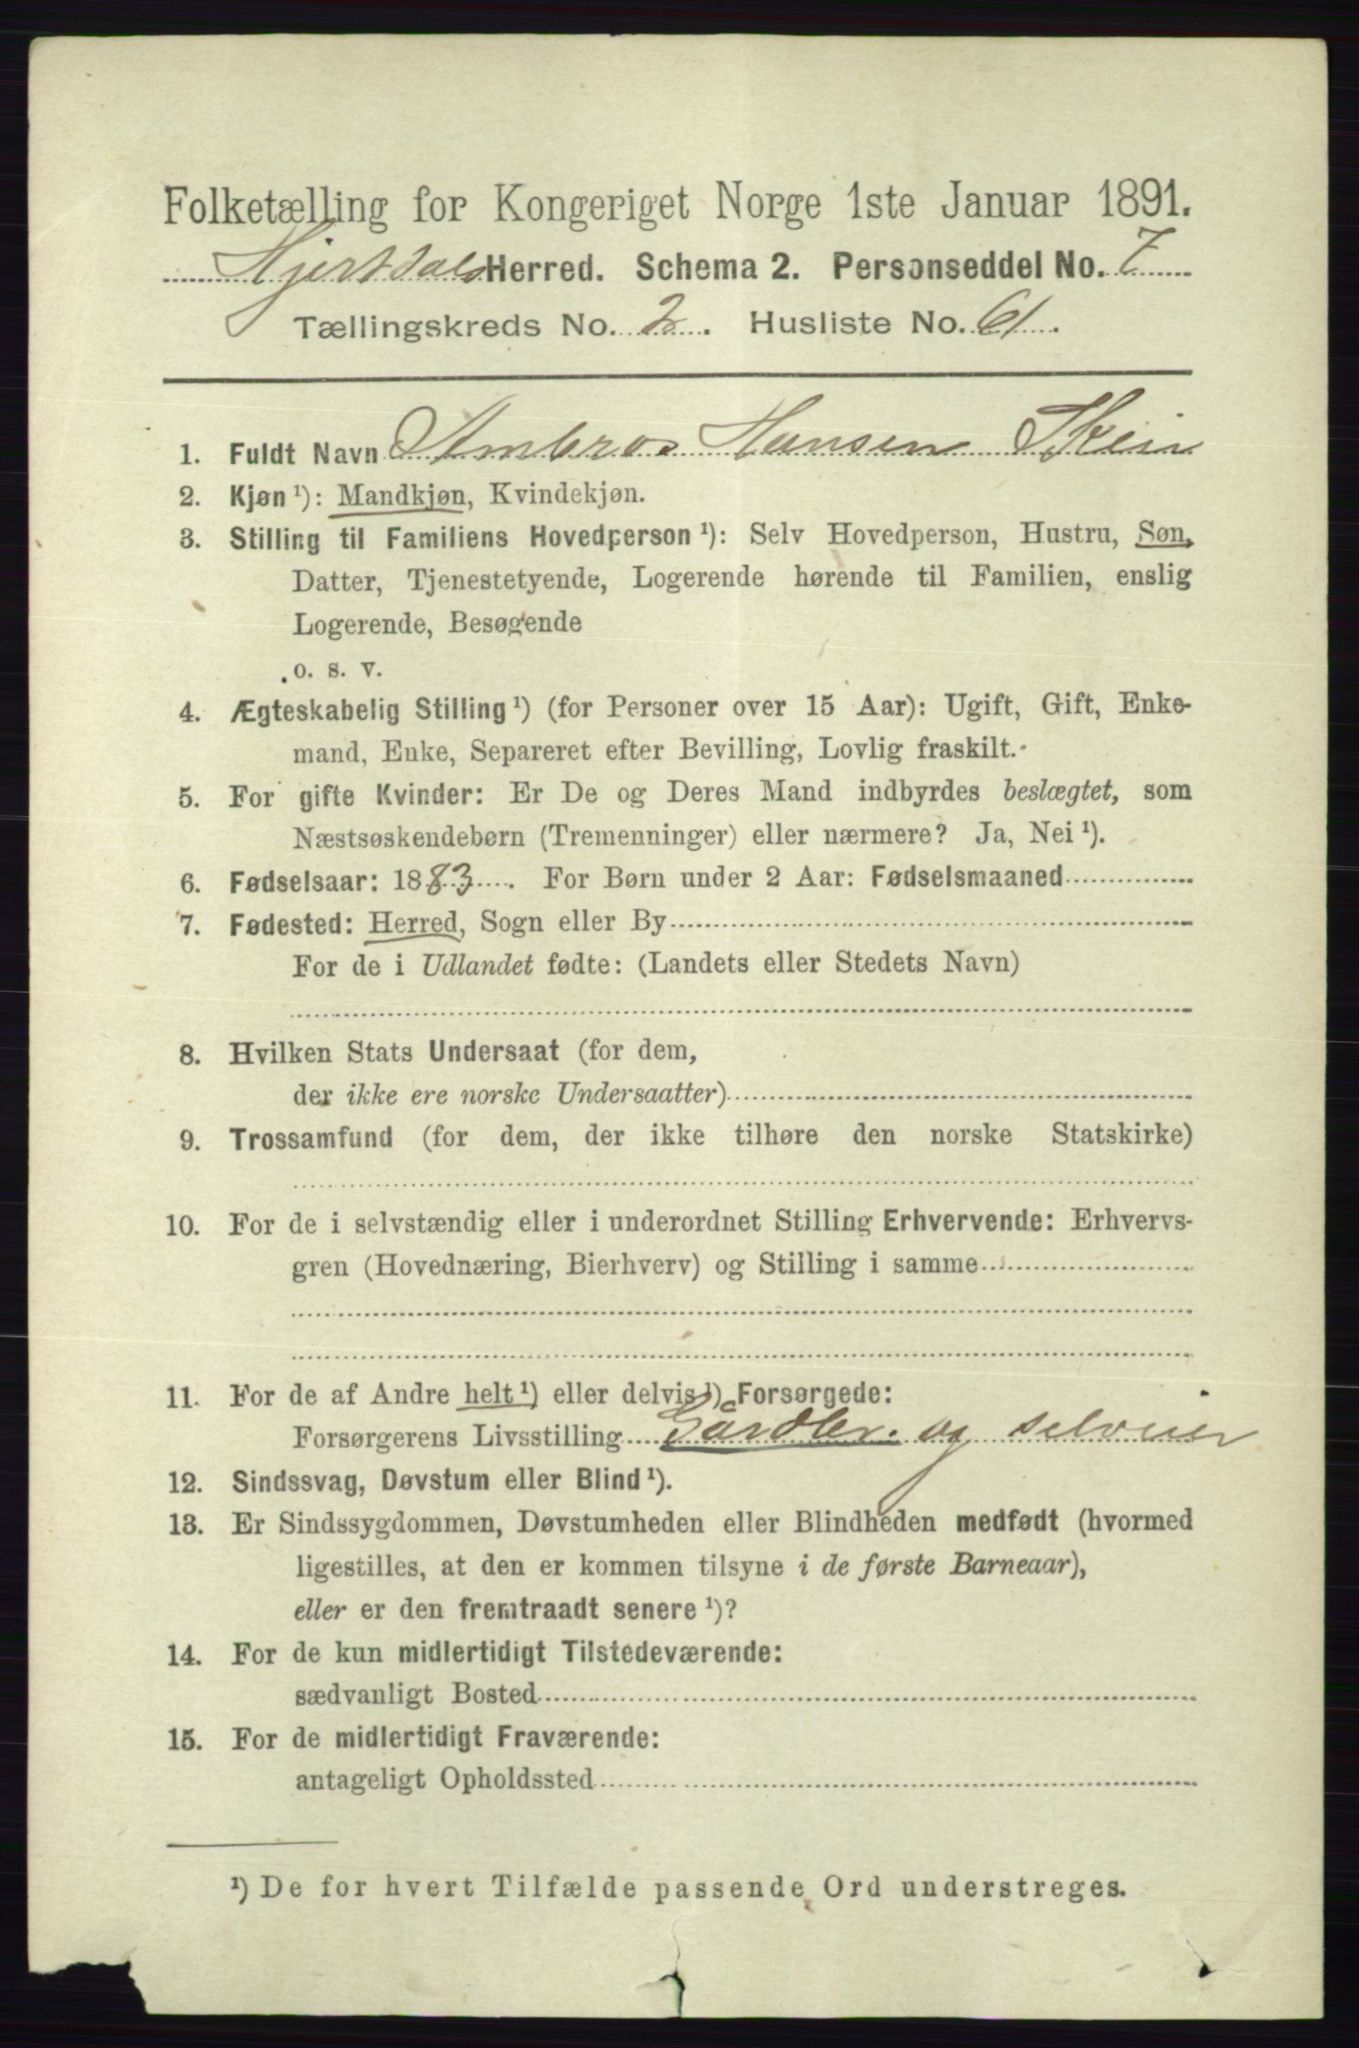 Folketælling for Kongeriget Norge 1ste Januar 1891.
Hjertdals Herred. Schema 2. Personseddel No. 7
Tællingskreds No. 2. Husliste No. 61.
1. Fuldt Navn Ambros Hansen Skein
2. Kjøn ¹): Mandkjøn, Kvindekjøn.
3. Stilling til Familiens Hovedperson ¹): Selv Hovedperson, Hustru, Søn,
Datter, Tjenestetyende, Logerende hørende til Familien, enslig
Logerende, Besøgende
o. s. v.
4. Ægteskabelig Stilling ¹) (for Personer over 15 Aar): Ugift, Gift, Enke-
mand, Enke, Separeret efter Bevilling, Lovlig fraskilt.
5. For gifte Kvinder: Er De og Deres Mand indbyrdes beslægtet, som
Næstsøskendebørn (Tremenninger) eller nærmere? Ja, Nei ¹).
6. Fødselsaar: 1883. For Børn under 2 Aar: Fødselsmaaned
7. Fødested: Herred, Sogn eller By
For de i Udlandet fødte: (Landets eller Stedets Navn)
8. Hvilken Stats Undersaat (for dem,
der ikke ere norske Undersaatter)
9. Trossamfund (for dem, der ikke tilhøre den norske Statskirke)
10. For de i selvstændig eller i underordnet Stilling Erhvervende: Erhvervs-
gren (Hovednæring, Bierhverv) og Stilling i samme
11. For de af Andre helt ¹) eller delvis ¹) Forsørgede:
Forsørgerens Livsstilling Gårdbr. og selveier
12. Sindssvag, Døvstum eller Blind ¹).
13. Er Sindssygdommen, Døvstumheden eller Blindheden medfødt (hvormed
ligestilles, at den er kommen tilsyne i de første Barneaar),
eller er den fremtraadt senere ¹)?
14. For de kun midlertidigt Tilstedeværende:
sædvanligt Bosted
15. For de midlertidigt Fraværende:
antageligt Opholdssted
¹) De for hvert Tilfælde passende Ord understreges.